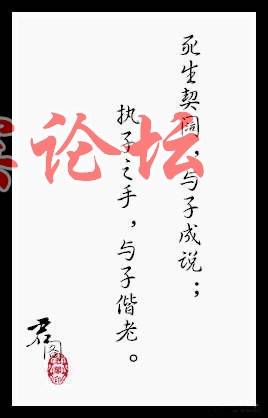 死生契阔，与子成说；
执子之手，与子偕老。
论坛
君